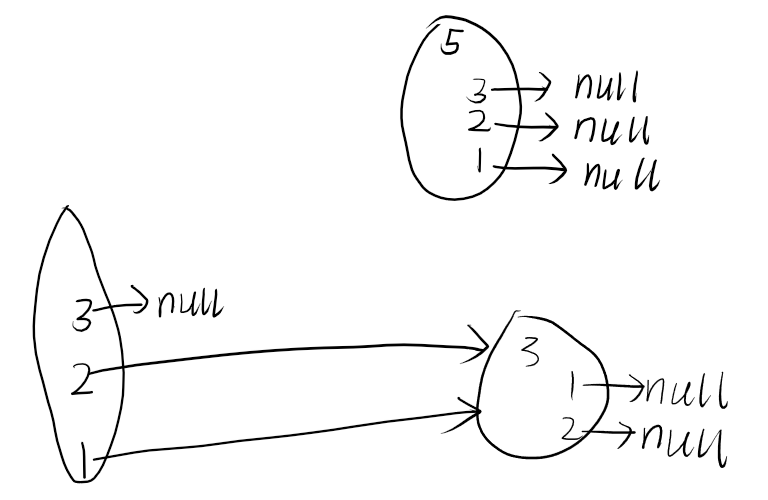 5
3 → null
2 → null
1 → null
3 → null
2
1
3
1 → null
2 → null